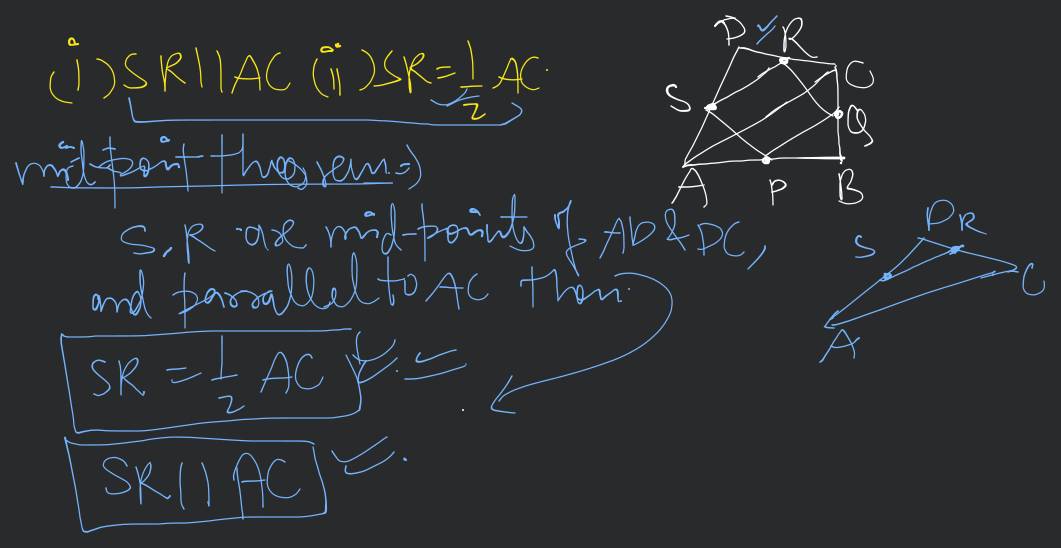 (i) SR || AC (ii) SR = 1/2 AC
mid-point theorem =>
S, R are mid-points of AD & DC,
and parallel to AC then
SR = 1/2 AC
SR || AC
D R
C
S
Q
A P B
D R
S
C
A